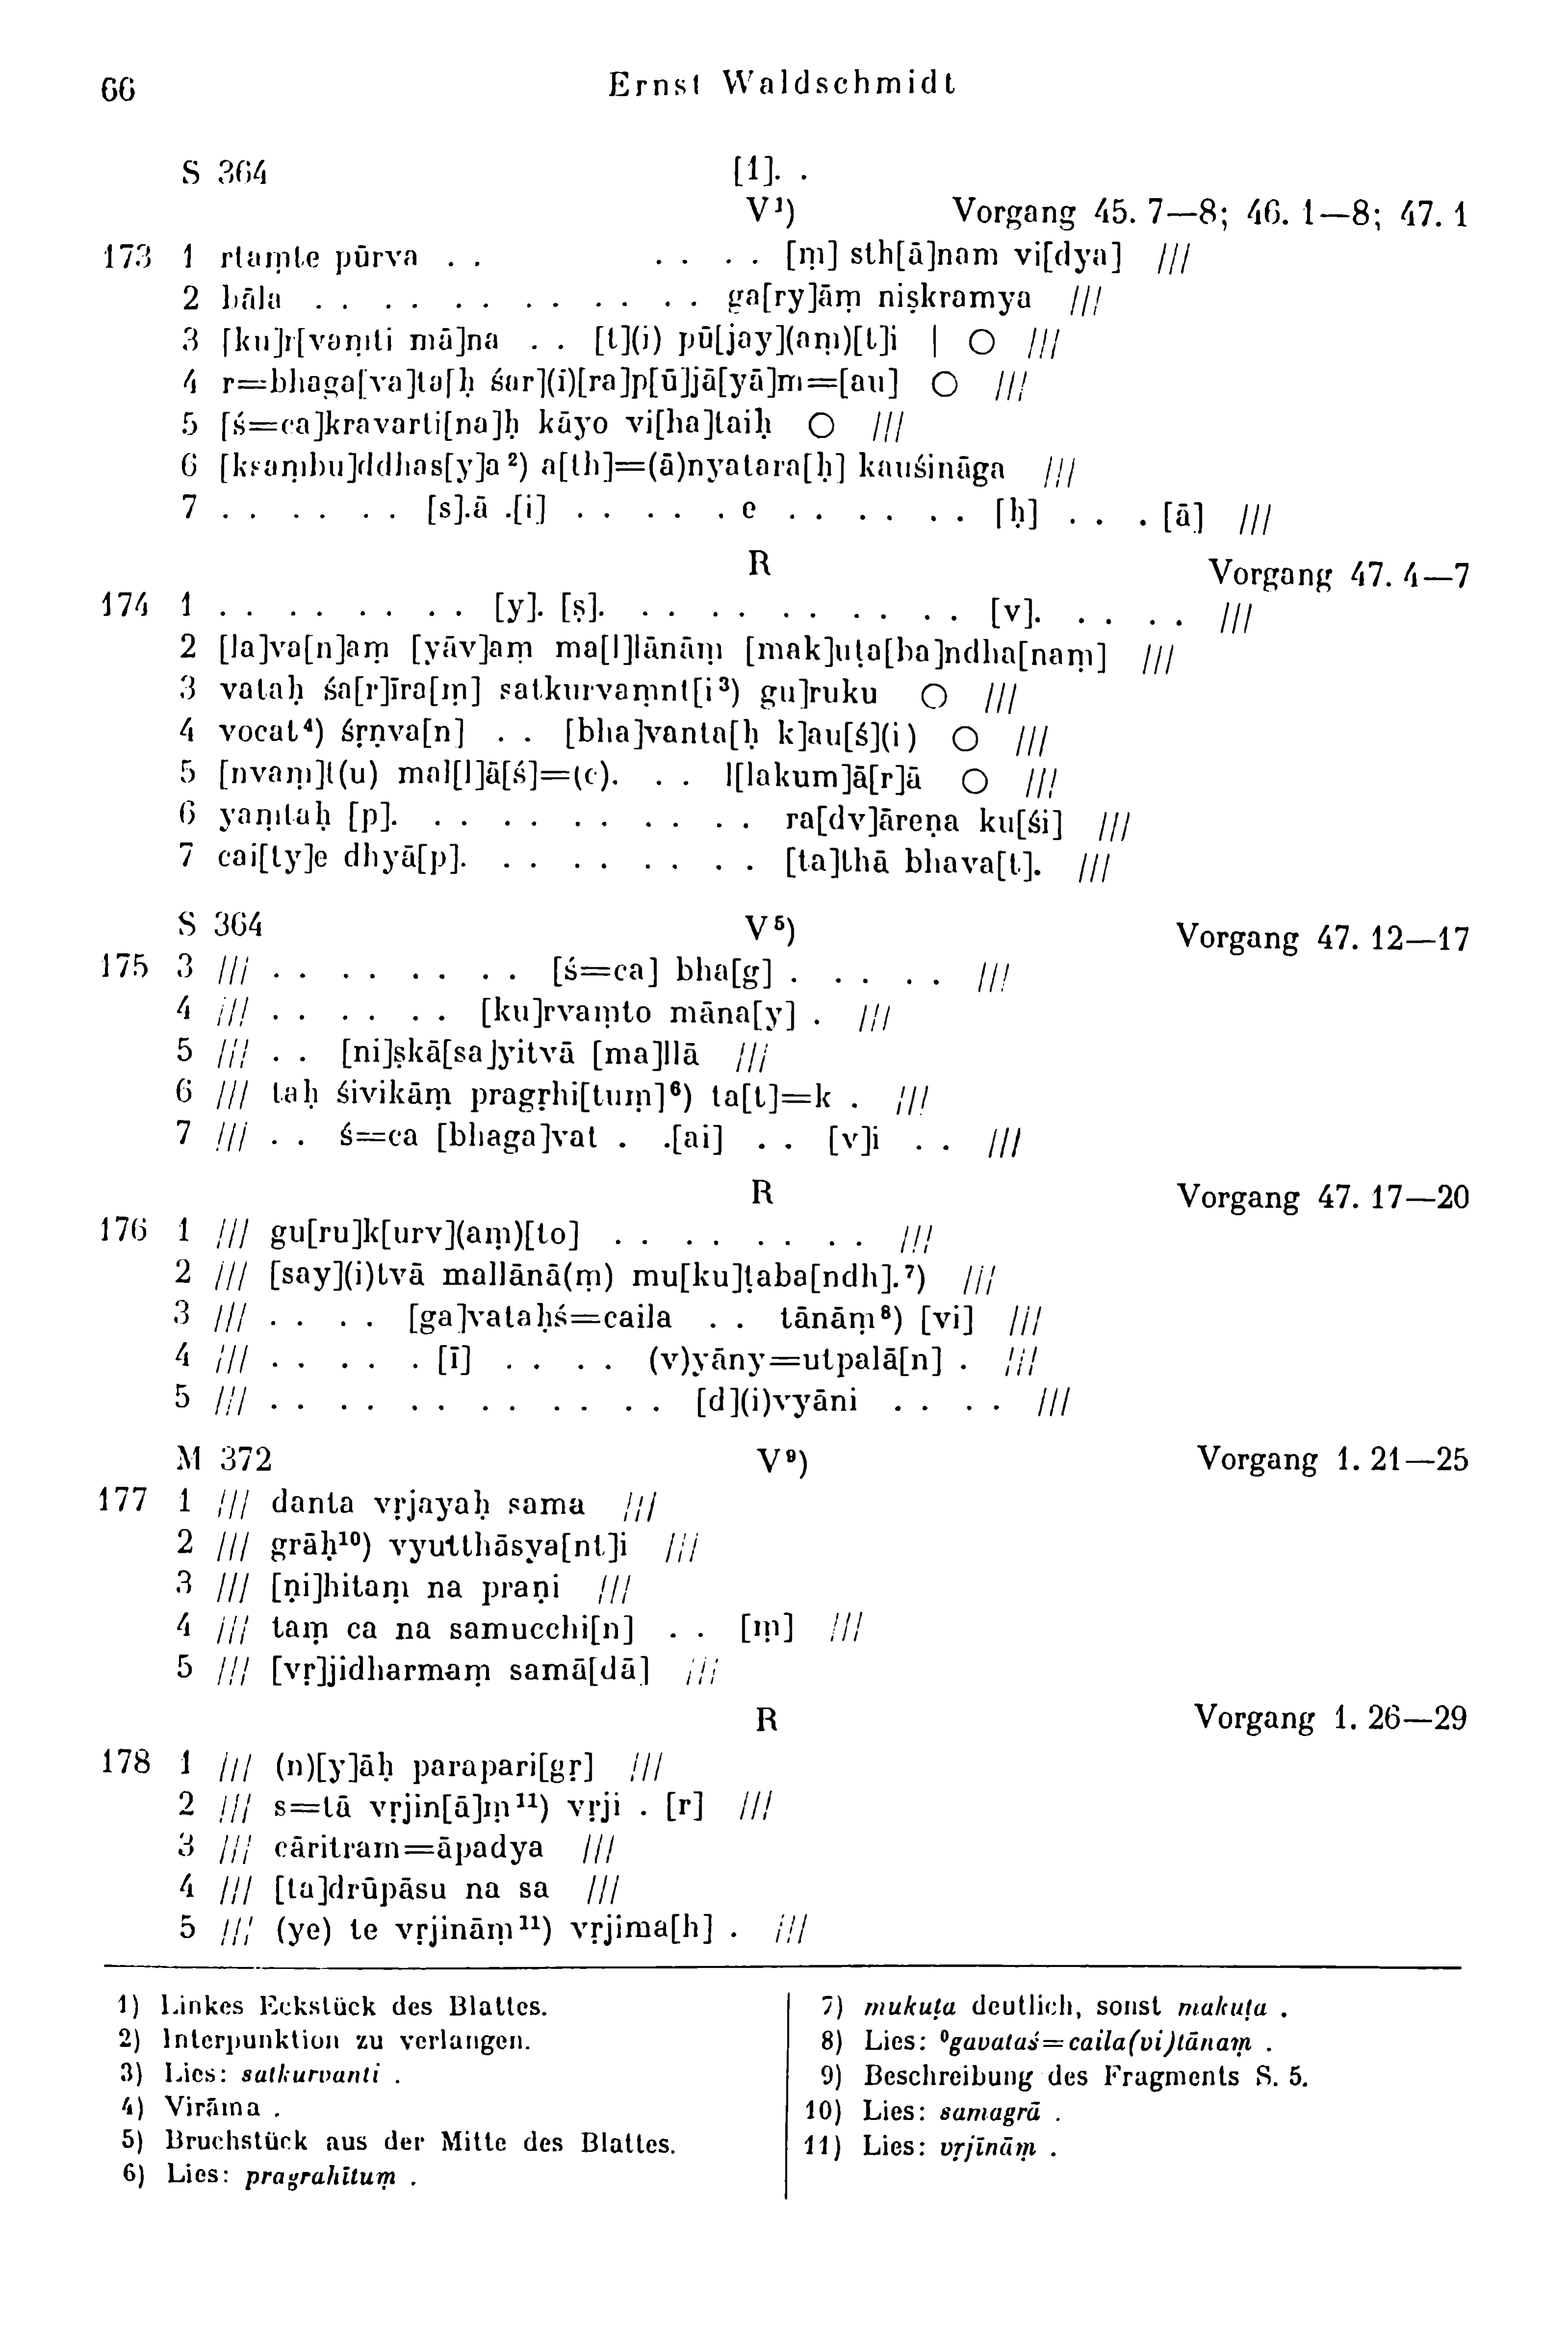 66 Ernst Waldschmidt
S 364 [1]. .
V¹) Vorgang 45. 7—8; 46. 1—8; 47. 1
173 1 rtaṃte pūrva . . . . . . [ṃ] sth[ā]nam vi[dya] ///
2 bāla . . . . . . . . . . . . ga[ry]āṃ niṣkramya ///
3 [ku]r[vaṃti mā]na . . [t](i) pū[jay](aṃ)[t]i | ○ ///
4 r=bhaga[va]ta[ḥ śar](i)[ra]p[ū]jā[yā]m=[au] ○ ///
5 [ś=ca]kravarti[na]ḥ kāyo vi[ha]taiḥ ○ ///
6 [ksaṃbu]ddhas[y]a²) a[th]=(ā)nyatara[ḥ] kauśināga ///
7 . . . . . . [s].ā .[i] . . . . . e . . . . . . [ḥ] . . . [ā] ///
R Vorgang 47. 4—7
174 1 . . . . . . . . [y]. [ṣ]. . . . . . . . . . . . [v]. . . . . ///
2 [la]va[n]aṃ [yāv]aṃ ma[l]lānāṃ [mak]uṭa[ba]ndha[naṃ] ///
3 vataḥ śa[r]īra[ṃ] satkurvaṃnt[i³) gu]ruku ○ ///
4 vocat⁴) śṛṇva[n] . . [bha]vanta[ḥ k]au[ś](i) ○ ///
5 [nvaṃ]t(u) mal[l]ā[ś]=(c). . . l[lakum]ā[r]ā ○ ///
6 yaṃtaḥ [p]. . . . . . . . . . . ra[dv]āreṇa ku[śi] ///
7 cai[ty]e dhyā[p]. . . . . . . . . [ta]thā bhava[t]. ///
S 364 V⁵) Vorgang 47. 12—17
175 3 /// . . . . . . . . [ś=ca] bha[g] . . . . . ///
4 /// . . . . . . [ku]rvaṃto māna[y] . ///
5 /// . . [ni]ṣkā[sa]yitvā [ma]llā ///
6 /// taḥ śivikāṃ pragṛhi[tuṃ]⁶) ta[t]=k . ///
7 /// . . ś=ca [bhaga]vat . .[ai] . . [v]i . . ///
R Vorgang 47. 17—20
176 1 /// gu[ru]k[urv](aṃ)[to] . . . . . . . . ///
2 /// [say](i)tvā mallānā(ṃ) mu[ku]ṭaba[ndh].⁷) ///
3 /// . . . . [ga]vataḥś=caila . . tānāṃ⁸) [vi] ///
4 /// . . . . . [ī] . . . . (v)yāny=utpalā[n] . ///
5 /// . . . . . . . . . . . . [d](i)vyāni . . . . ///
M 372 V⁹) Vorgang 1. 21—25
177 1 /// danta vṛjayaḥ sama ///
2 /// grāḥ¹⁰) vyutthāsya[nt]i ///
3 /// [ṇi]hitaṃ na praṇi ///
4 /// taṃ ca na samucchi[n] . . [ṃ] ///
5 /// [vṛ]jidharmaṃ samā[dā] ///
R Vorgang 1. 26—29
178 1 /// (n)[y]āḥ parapari[gṛ] ///
2 /// s=tā vṛjin[ā]ṃ¹¹) vṛji . [r] ///
3 /// cāritram=āpadya ///
4 /// [ta]drūpāsu na sa ///
5 /// (ye) te vṛjināṃ¹¹) vṛjima[h] . ///
1) Linkes Eckstück des Blattes.
2) Interpunktion zu verlangen.
3) Lies: satkurvanti .
4) Virāma .
5) Bruchstück aus der Mitte des Blattes.
6) Lies: pragrahītuṃ .
7) mukuṭa deutlich, sonst makuṭa .
8) Lies: ⁰gavataś=caila(vi)tānaṃ .
9) Beschreibung des Fragments S. 5.
10) Lies: samagrā .
11) Lies: vṛjīnāṃ .